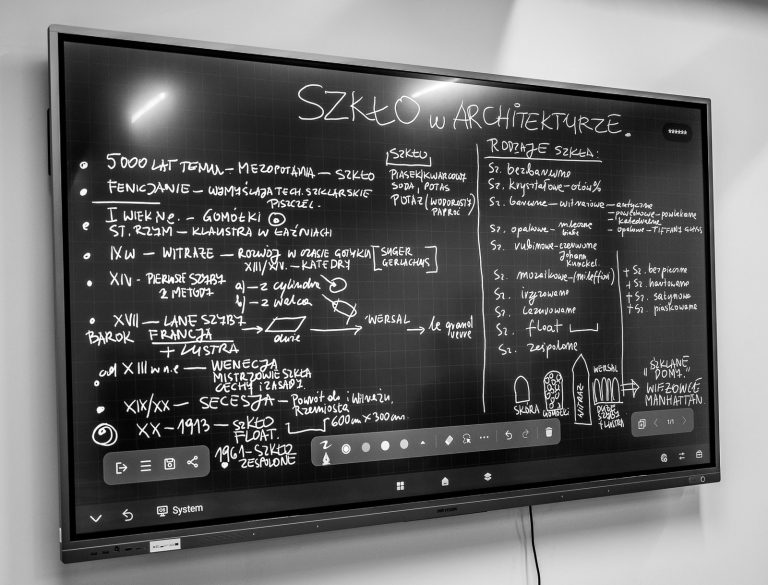 SZKŁO W ARCHITEKTURZE.
5000 LAT TEMU – MEZOPOTAMIA – SZKŁO
FENICJANIE – WYMYŚLAJĄ TECH. SZKLARSKIE
PISZCZEL.
I WIEK NE. – GOMÓŁKI
ST. RZYM – KLAUSTRA W ŁAŹNIACH
IX W – WITRAŻE – ROZWÓJ W CZASIE GOTYKU
XIII/XIV. – KATEDRY
SUGER
GERLACHUS
XIV – PIERWSZE SZYBY
2 METODY
a) – z cylindra
b) – z walca
XVII – LANE SZYBY
BAROK FRANCJA
+ LUSTRA
duże
WERSAL
le grand
verre
od XIII w n.e – WENECJA
MISTRZOWIE SZKŁA
CECHY i ZASADY.
XIX/XX – SECESJA – Powrót do i Witrażu.
Rzemiosła
XX – 1913 – SZKŁO
FLOAT.
600 cm X 300 cm.
1961 – SZKŁO
ZESPOLONE
SZKŁO
PIASEK KWARCOWY
SODA, POTAS
POTAŻ (WODOROSTY
PAPROĆ
RODZAJE SZKŁA:
Sz. bezbarwne
Sz. kryształowe – ołów %
Sz. barwne – witrażowe – antyczne
– powlekane
katedralne
– opalowe – TIFFANY GLASS
Sz. opalowe – mleczne
białe
Sz. rubinowe – czerwone
Johann
Kunckel.
Sz. mozaikowe – (mileffiori)
Sz. iryzowane
Sz. lazurowane
Sz. float
Sz. zespolone
+ Sz. bezpieczne
+ Sz. hartowane
+ Sz. satynowe
+ Sz. piaskowane
SKÓRA
GOMÓŁKI
WITRAŻ
WERSAL
DUŻE
SZYBY
+ LUSTRA
„SZKLANE
DOMY."
WIEŻOWCE
MANHATTAN.
1/1
System